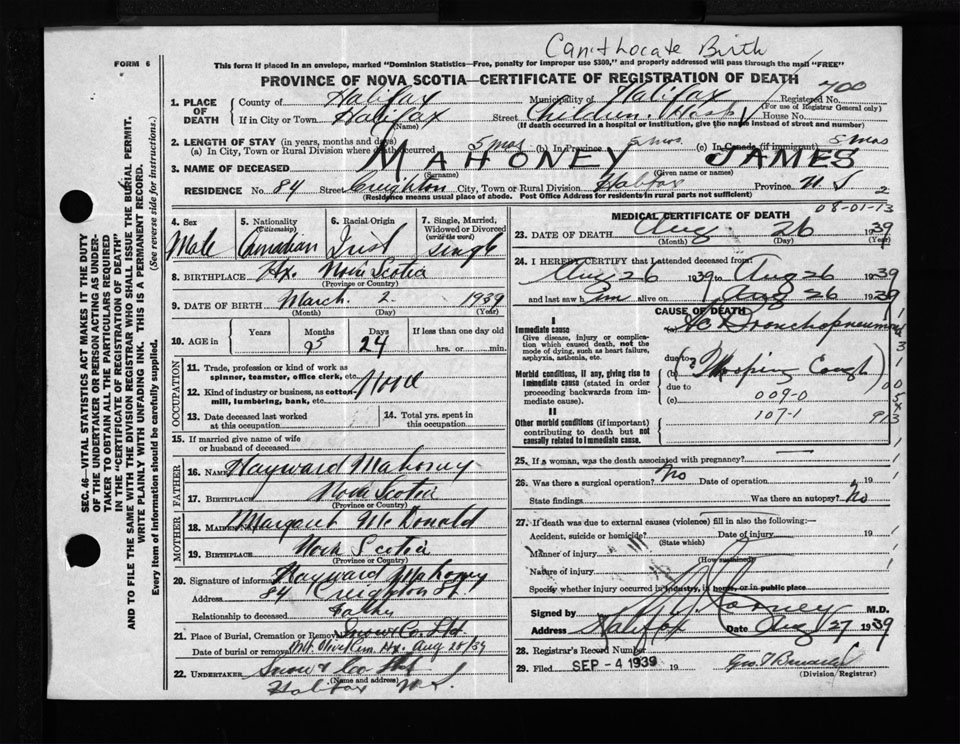 Can't Locate Birth
FORM 6
This form if placed in an envelope, marked "Dominion Statistics—Free, penalty for improper use $300," and properly addressed will pass through the mail "FREE"
PROVINCE OF NOVA SCOTIA—CERTIFICATE OF REGISTRATION OF DEATH
700
1. PLACE OF DEATH County of Halifax Municipality of Halifax Registered No.
(For use of Registrar General only)
If in City or Town Halifax Street Children's Hosp House No.
(Name) (If death occurred in a hospital or institution, give the name instead of street and number)
2. LENGTH OF STAY (in years, months and days)
(a) In City, Town or Rural Division where death occurred 5 mos (b) In Province 5 mos (c) In Canada (if immigrant) 5 mos
3. NAME OF DECEASED MAHONEY JAMES
(Surname) (Given name or names)
RESIDENCE No. 84 Street Creighton City, Town or Rural Division Halifax Province N S 2
(Residence means usual place of abode. Post Office Address for residents in rural parts not sufficient)
08-01-13
4. Sex 5. Nationality (Citizenship) 6. Racial Origin 7. Single, Married, Widowed or Divorced (write the word)
Male Canadian Irish single
8. BIRTHPLACE Hx. Nova Scotia
(Province or Country)
9. DATE OF BIRTH March 2 1939
(Month) (Day) (Year)
10. AGE in Years Months Days If less than one day old
5 24 hrs. or min.
OCCUPATION
11. Trade, profession or kind of work as spinner, teamster, office clerk, etc.
12. Kind of industry or business, as cotton mill, lumbering, bank, etc.
13. Date deceased last worked at this occupation
14. Total yrs. spent in this occupation
15. If married give name of wife or husband of deceased
FATHER
16. NAME Hayward Mahoney
17. BIRTHPLACE Nova Scotia
(Province or Country)
MOTHER
18. MAIDEN NAME Margaret McDonald
19. BIRTHPLACE Nova Scotia
(Province or Country)
20. Signature of informant Hayward Mahoney
Address 84 Creighton St.
Relationship to deceased Father
21. Place of Burial, Cremation or Removal Snow Co. Ltd.
Date of burial or removal Mt. Olivet Cem. Hx. Aug 28/39
22. UNDERTAKER Snow & Co Ltd
(Name and address)
Halifax N.S.
MEDICAL CERTIFICATE OF DEATH
23. DATE OF DEATH Aug 26 1939
(Month) (Day) (Year)
24. I HEREBY CERTIFY that I attended deceased from:
Aug 26 1939 to Aug 26 1939
and last saw him alive on Aug 26 1939
CAUSE OF DEATH
I
Immediate cause (a) Ac Bronchopneumonia
Give disease, injury or complication which caused death, not the mode of dying, such as heart failure, asphyxia, asthenia, etc.
due to
Morbid conditions, if any, giving rise to immediate cause (stated in order proceeding backwards from immediate cause). (b) ? Whooping Cough
due to
(c) 009-0
107-1
II
Other morbid conditions (if important) contributing to death but not causally related to immediate cause.
25. If a woman, was the death associated with pregnancy? —
26. Was there a surgical operation? No Date of operation 19
State findings Was there an autopsy? No
27. If death was due to external causes (violence) fill in also the following:—
Accident, suicide or homicide? Date of injury 19
(State which)
Manner of injury
(How sustained)
Nature of injury
Specify whether injury occurred in industry, in home, or in public place
Signed by M.D.
Address Halifax Date Aug 27 1939
28. Registrar's Record Number
29. Filed SEP - 4 1939 19
(Division Registrar)
SEC. 46—VITAL STATISTICS ACT MAKES IT THE DUTY
OF THE UNDERTAKER OR PERSON ACTING AS UNDER-
TAKER TO OBTAIN ALL THE PARTICULARS REQUIRED
IN THE "CERTIFICATE OF REGISTRATION OF DEATH"
AND TO FILE THE SAME WITH THE DIVISION REGISTRAR WHO SHALL ISSUE THE BURIAL PERMIT.
WRITE PLAINLY WITH UNFADING INK. THIS IS A PERMANENT RECORD.
Every item of information should be carefully supplied. (See reverse side for instructions.)